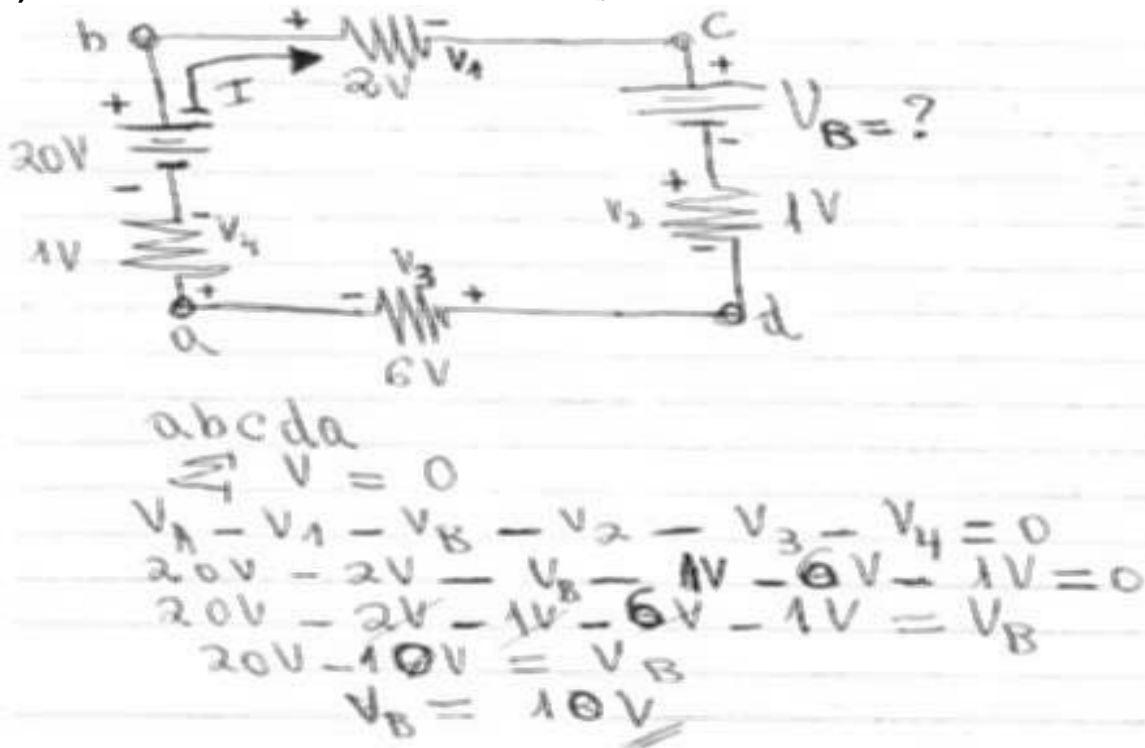 b + - c
I 2V V1 +
+ V_B = ?
20V -
- + 
1V - V4 V2 1V
V3 -
+ - +
a d
6V
abcda
Σ V = 0
V_A - V_1 - V_B - V_2 - V_3 - V_4 = 0
20V - 2V - V_B - 1V - 6V - 1V = 0
20V - 2V - 1V - 6V - 1V = V_B
20V - 10V = V_B
V_B = 10V